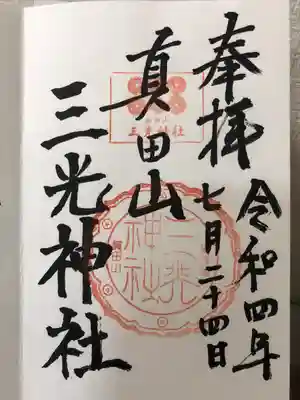 奉拝
令和四年
七月二十四日
真田山
三光神社
三光神社
三光
神社
眞田山